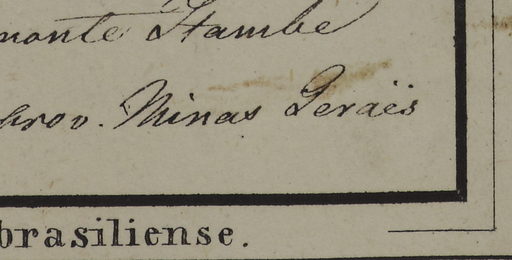 monte Itambé
Prov. Minas Geraës
brasiliense.